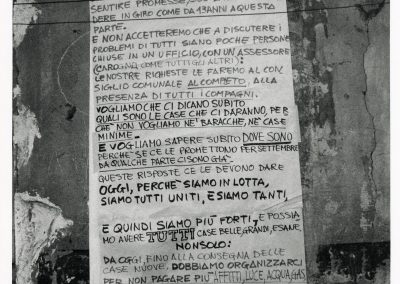 SENTIRE PROMESSE,
DERE IN GIRO COME DA 13 ANNI A QUESTA
PARTE.
E NON ACCETTEREMO CHE A DISCUTERE I
PROBLEMI DI TUTTI SIANO POCHE PERSONE
CHIUSE IN UN UFFICIO, CON UN ASSESSORE
(CAROGNA COME TUTTI GLI ALTRI):
LE NOSTRE RICHIESTE LE FAREMO AL CON
SIGLIO COMUNALE AL COMPETO, ALLA
PRESENZA DI TUTTI I COMPAGNI.
VOGLIAMO CHE CI DICANO SUBITO
QUALI SONO LE CASE CHE CI DARANNO, PER
CHE' NON VOGLIAMO NE' BARACCHE, NE' CASE
MINIME.
E VOGLIAMO SAPERE SUBITO DOVE SONO
PERCHE' SE CE LE PROMETTONO PER SETTEMBRE
DA QUALCHE PARTE CI SONO GIA'
QUESTE RISPOSTE CE LE DEVONO DARE
OGGI, PERCHE' SIAMO IN LOTTA,
SIAMO TUTTI UNITI, E SIAMO TANTI
E QUINDI SIAMO PIU' FORTI, E POSSIA
MO AVERE TUTTI CASE BELLE, GRANDI, E SANE,
NON SOLO:
DA OGGI, FINO ALLA CONSEGNA DELLE
CASE NUOVE, DOBBIAMO ORGANIZZARCI
PER NON PAGARE PIU' AFFITTI, LUCE, ACQUA, GAS